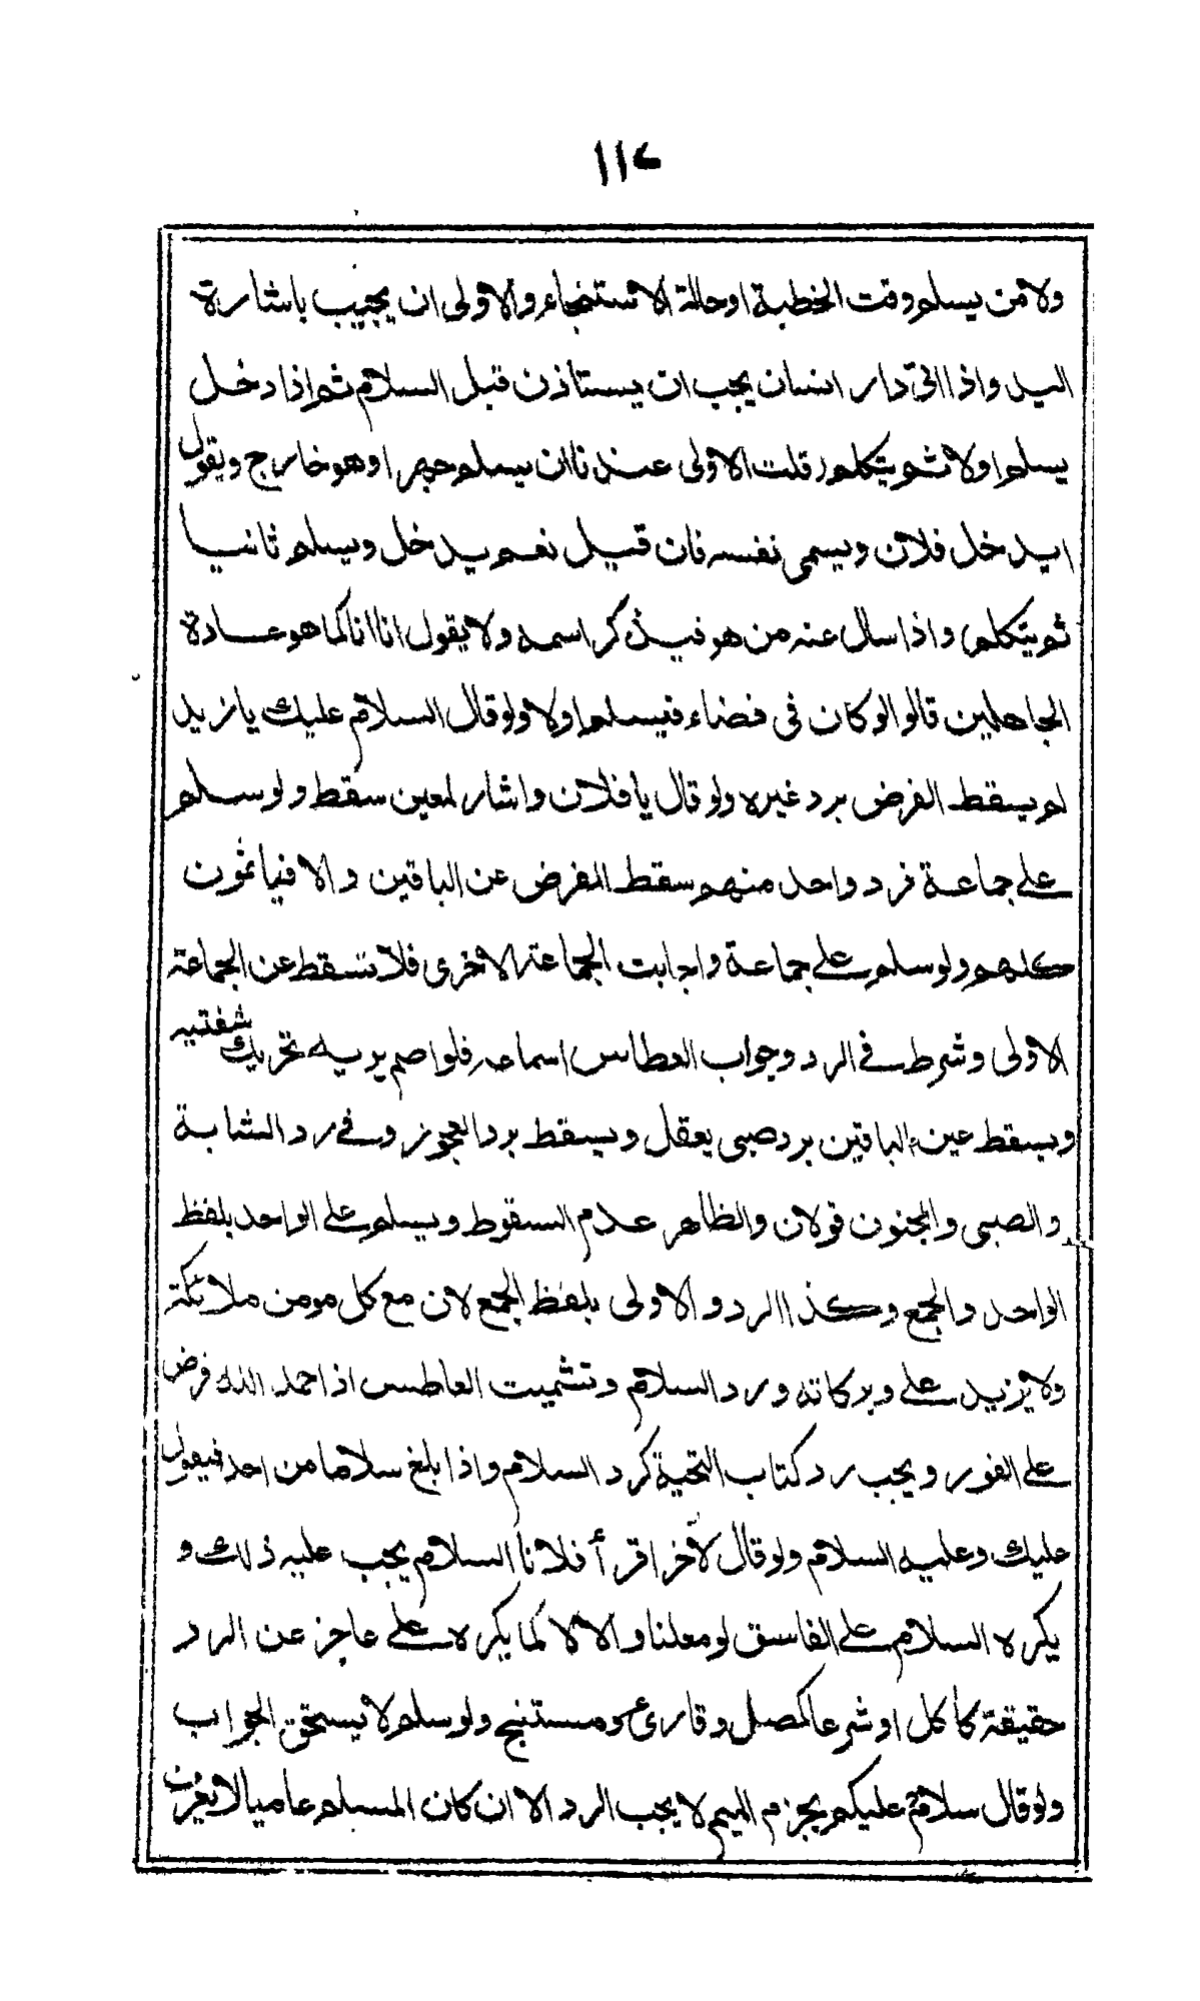 ١١٧
ولا من يسلم وقت الخطبة او حالة الاستنجاء والاولى ان يجيب باشارة
اليد واذا اتى دار انسان يجب ان يستاذن قبل السلام ثم اذا دخل
يسلم اولا ثم يتكلم قلت الاولى عندنا ان يسلم جهرا وهو خارج ويقول
ايدخل فلان ويسمى نفسه فان قيل نعم يدخل ويسلم ثانيا
ثم يتكلم واذا سال عنه من هو فيذكر اسمه ولا يقول انا انا كما هو عادة
الجاهلين قالوا لو كان فى فضاء فيسلم اولا ولو قال السلام عليك يا زيد
لم يسقط الفرض برد غيره ولو قال يا فلان واشار لمعين سقط ولو سلم
على جماعة فرد واحد منهم سقط الفرض عن الباقين والا فياثمون
كلهم ولو سلم على جماعة واجابت الجماعة الاخرى فلا تسقط عن الجماعة
الاولى وشرط فى الرد وجواب العطاس اسماعه فلو اصم يريه تحريك شفتيه
ويسقط عن الباقين برد صبى يعقل ويسقط برد العجوز وفى رد الشابة
والصبى والمجنون قولان والظاهر عدم السقوط ويسلم على الواحد بلفظ
الواحد والجمع وكذا الرد والاولى بلفظ الجمع لان مع كل مومن ملائكة
ولا يزيد على وبركاته ورد السلام وتشميت العاطس اذا حمد الله فرض
على الفور ويجب رد كتاب التحية كرد السلام واذا بلغ سلاما من احد فيقول
عليك وعليه السلام ولو قال لآخر اقرأ فلانا السلام يجب عليه ذلك و
يكره السلام على الفاسق لو معلنا والا لا كما يكره على عاجز عن الرد
حقيقة كآكل او شرعا كمصل وقارئ ومستنج ولو سلم لا يستحق الجواب
ولو قال سلام عليكم بجزم الميم لا يجب الرد الا ان كان المسلم عاميا لا يعرف